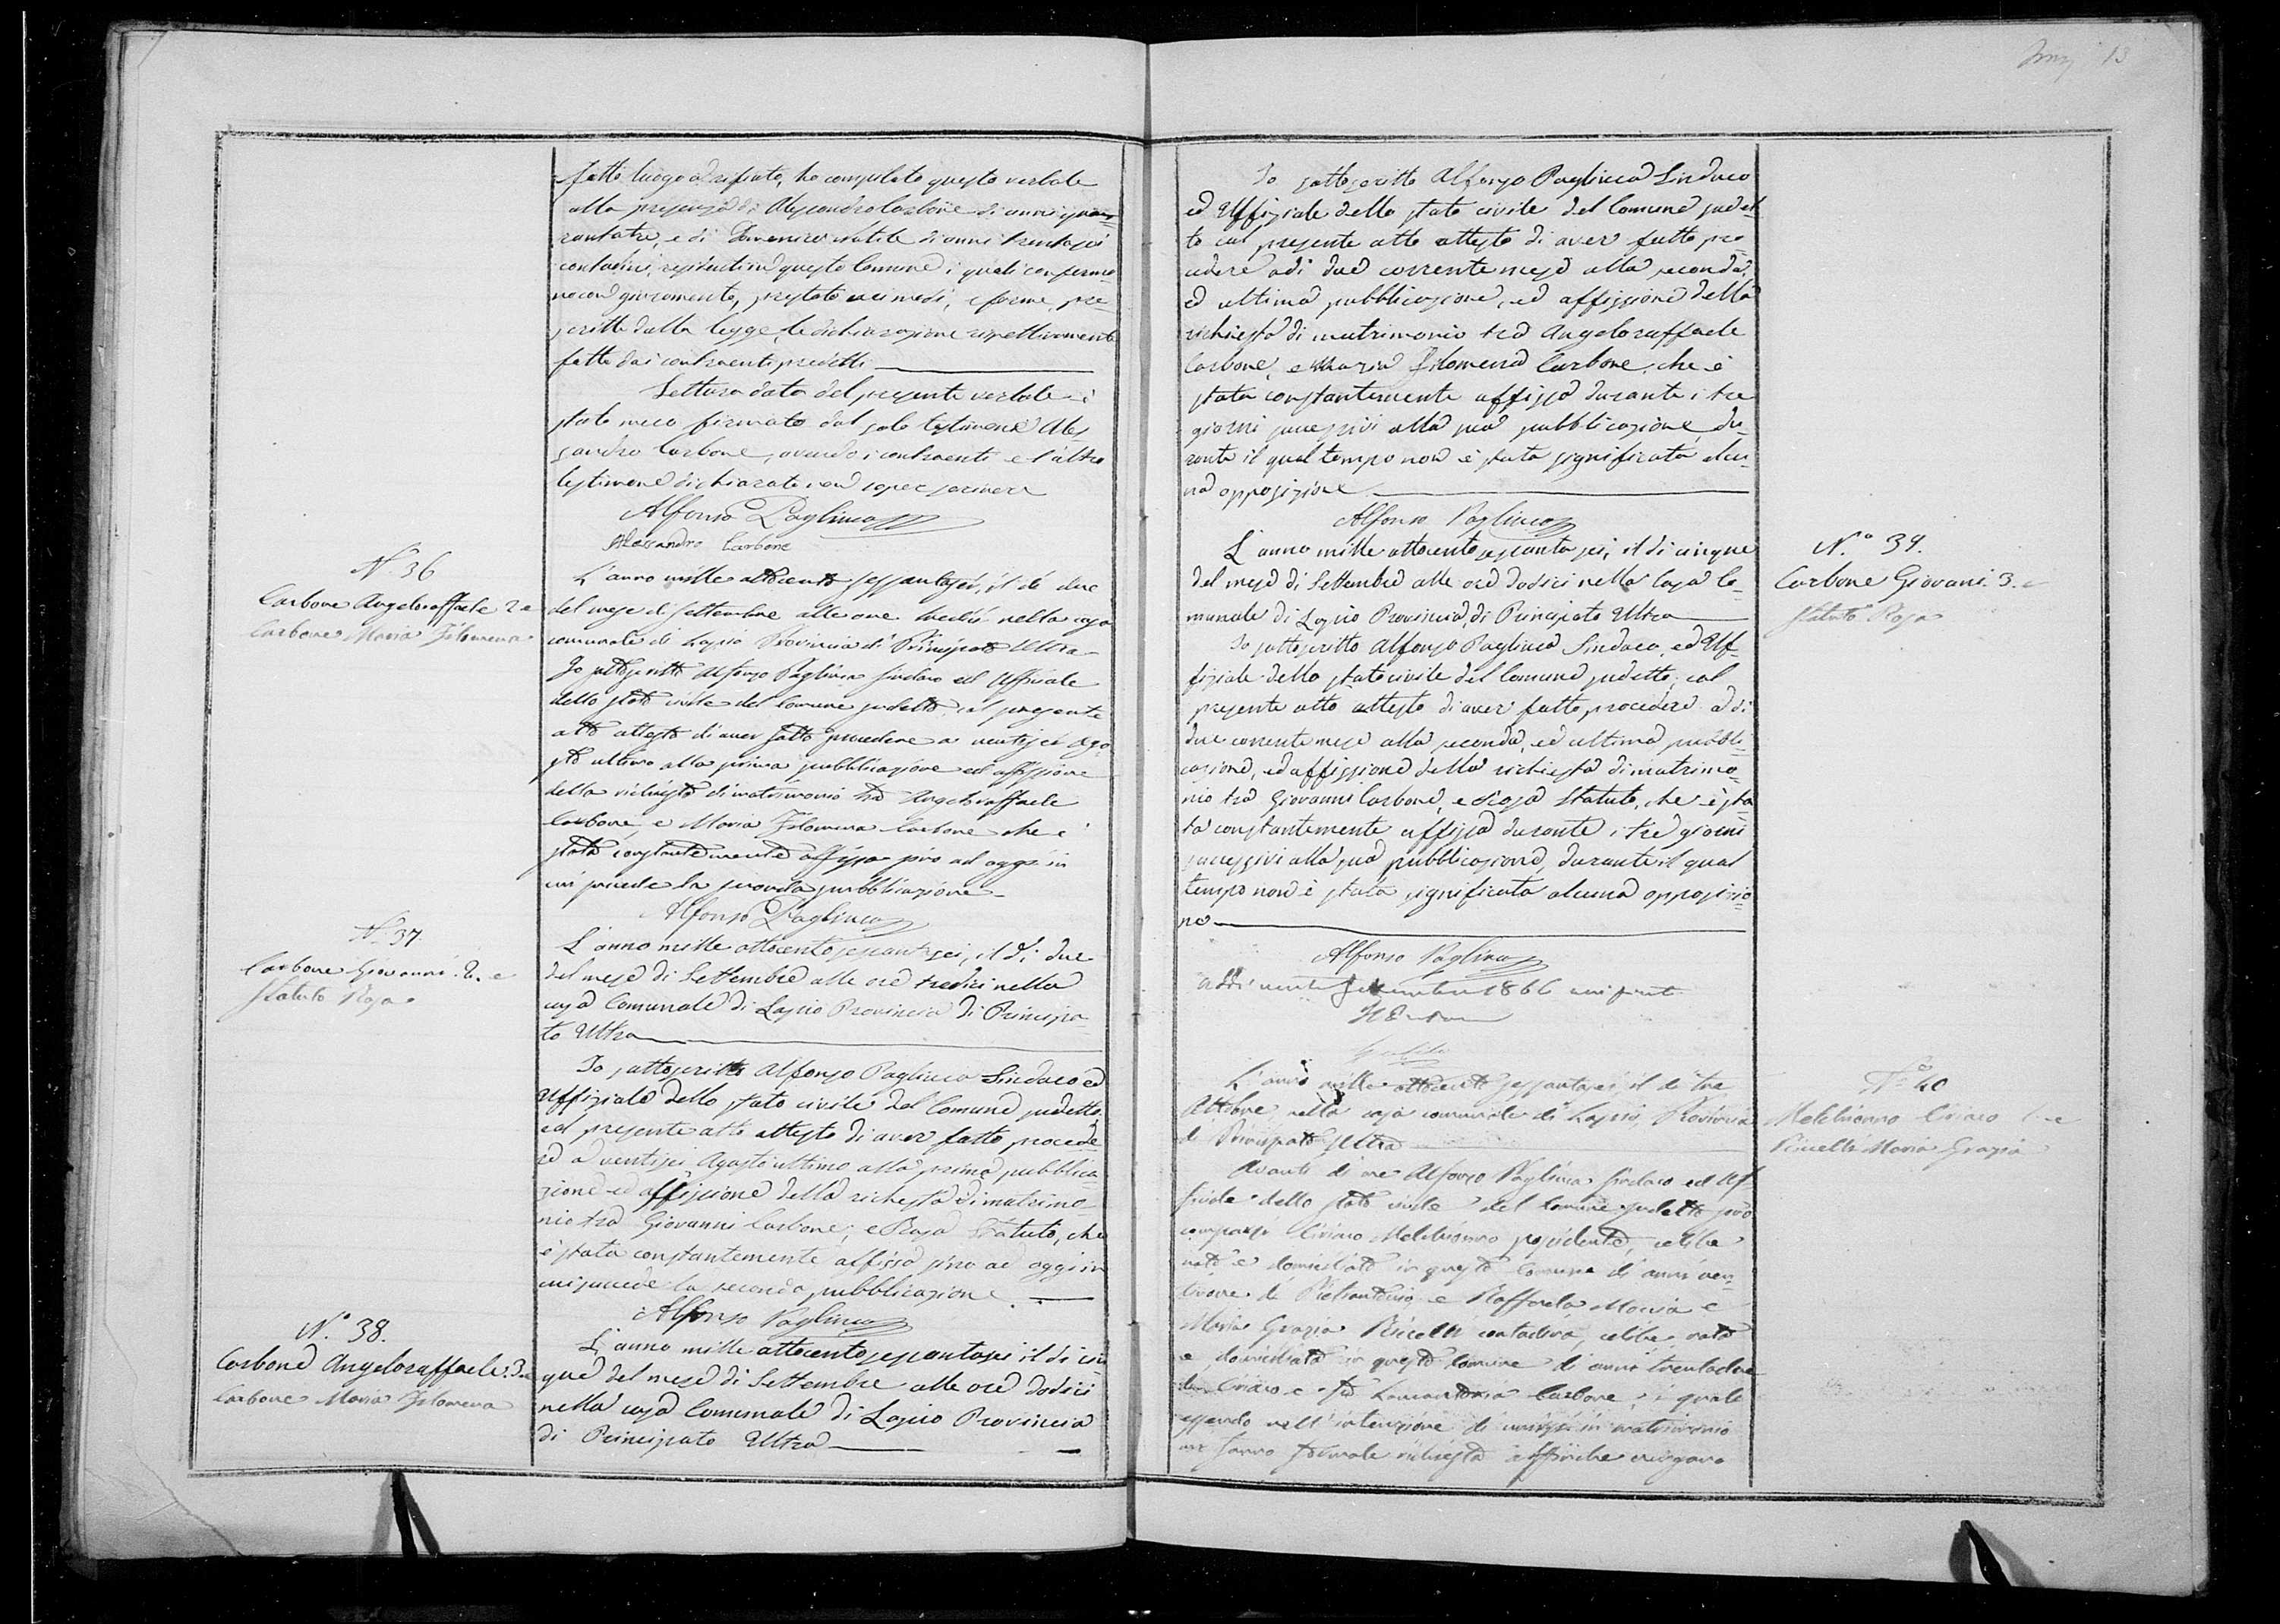 fatto luogo al rifiuto, ho compilato questo verbale
alla presenza di Alessandro Carbone di anni qua=
rantatre, e di Domenico di anni trentasei
contadini, residenti in questo Comune i quali conferma
no con giuramento, prestato nei modi, e forme pre
scritte dalla legge, le dichiarazione rispettivamente
fatte dai contraenti predetti
Lettura data del presente verbale è
stato meco firmato dal solo testimone Ales
sandro Carbone, avendo i contraenti e l'altro
testimone dichiarato non saper scrivere
Alfonso Pagliuca
Alessandro Carbone
N. 36
Carbone Angeloraffaele 2 e
Carbone Maria Filomena
L'anno mille ottocento sessantasei, il dì due
del mese di Settembre alle ore tredici nella casa
comunale di Lapio Provincia di Principato Ultra
Io sottoscritto Alfonso Pagliuca Sindaco ed Uffiziale
dello stato civile del Comune sudetto, col presente
atto attesto di aver fatto procedere a ventisei Ago
sto ultimo alla prima pubblicazione ed affissione
della richiesta di matrimonio tra Angeloraffaele
Carbone, e Maria Filomena Carbone che è
stata constantemente affissa sino ad oggi in
cui succede la seconda pubblicazione
Alfonso Pagliuca
N. 37.
Carbone Giovanni. 2. e
Statuto Rosa
L'anno mille ottocento sessantasei, il dì due
del mese di Settembre alle ore tredici nella
casa Comunale di Lapio Provincia di Principa
to Ultra
Io sottoscritto Alfonso Pagliuca Sindaco ed
Uffiziale dello stato civile del Comune sudetto,
col presente atto attesto di aver fatto procede
re a ventisei Agosto ultimo alla prima pubblica
zione ed affissione della richiesta di matrimo
nio tra Giovanni Carbone, e Rosa Statuto, che
è stata constantemente affissa sino ad oggi in
cui succede la seconda pubblicazione.
Alfonso Pagliuca
N.° 38.
Carbone Angeloraffaele. 3. e
Carbone Maria Filomena
L'anno mille ottocento sessantasei il dì cin
que del mese di Settembre alle ore dodici
nella casa Comunale di Lapio Provincia
di Principato Ultra
13
Io sottoscritto Alfonso Pagliuca Sindaco
ed Uffiziale dello stato civile del Comune sudet
to col presente atto attesto di aver fatto pro
cedere adi due corrente mese alla seconda,
ed ultima pubblicazione, ed affissione della
richiesta di matrimonio tra Angeloraffaele
Carbone, e Maria Filomena Carbone, che è
stata constantemente affissa durante i tre
giorni successivi alla sua pubblicazione, du=
rante il qual tempo non è stata significata alcu=
na opposizione
Alfonso Pagliuca
N.° 39.
Carbone Giovani. 3. e
Statuto Rosa
L'anno mille ottocento sessanta sei, il di cinque
del mese di Settembre alle ore dodici nella Casa Co=
munale di Lapio Provincia, di Principato Ultra
Io sottoscritto Alfonso Pagliuca Sindaco, ed Uf=
fiziale dello stato civile del Comune sudetto, col
presente atto attesto di aver fatto procedere a di
due corrente mese alla seconda, ed ultima pubbli=
cazione, ed affissione della richiesta di matrimo=
nio tra Giovanni Carbone, e Rosa Statuto, che è sta=
ta constantemente affissa durante i tre giorni
successivi alla sua pubblicazione, durante il qual
tempo non è stata significata alcuna opposizio=
ne
Alfonso Pagliuca
Addi venti Settembre 1866
N.° 40
Melchionno Ciriaco 1. e
Ricelli Maria Grazia
L'anno mille ottocento sessantasei, il dì tre
Ottobre nella casa comunale di Lapio, Provincia
di Principato Ultra
Avanti di me Alfonso Pagliuca Sindaco ed Uf
fiziale dello stato civile del Comune sudetto sono
comparsi Ciriaco Melchionno possidente, celibe
nato e domiciliato in questo Comune di anni ven
tinove di e Raffaela e
Maria Grazia Ricelli contadina, celibe nata
e domiciliata in questo Comune di anni trentadue
di Ciriaco e fu Carbone, i quali
essendo nell'intenzione di unirsi in matrimonio
mi fanno formale richiesta affinchè vengano